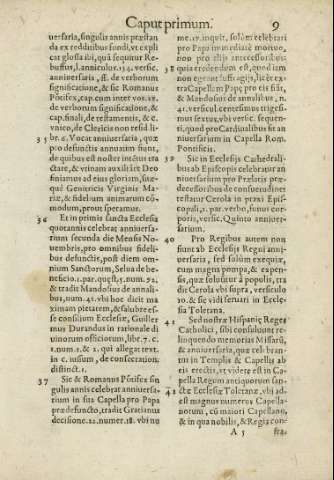 Caput primum. 9
uersaria, singulis annis præstan
da ex redditibus fundi, vt expli
cat glossa ibi, quā sequitur Re-
buffus, l. anniculus. 134. versic.
anniuersaria, ff. de verborum
significatione, & sic Romanus
Pōtifex, cap. cum inter vos. 22.
de verborum significatione, &
cap. finali, de testamentis, & c.
vnico, de Clericis non resid. li-
35 br. 6. Vocat anniuersaria, quæ
pro defunctis annuatim fiunt,
de quibus est noster intētus tra
ctare, & vtinam auxiliāte Deo
finiamus ad eius gloriam, suæ-
què Genitricis Virginis Ma-
riæ, & fidelium animarum cō-
modum, prout speramus.
36 Et in primis sancta Ecclesia
quotannis celebrat anniuersa-
rium secunda die Mensis No-
uembris, pro omnibus fideli-
bus defunctis, post diem om-
nium Sanctorum, Selua de be-
neficio. 1. par. quæst. 5. num. 72.
& tradit Mandosius de annali-
bus, num. 41. vbi hoc dicit ma
ximam pietatem, & salubre es-
se consilium Ecclesiæ, Guiller
mus Durandus in rationale di
uinorum officiorum, lib. 7. c.
1. num. 1. & 2. qui allegat text.
in c. iusium, de consecration.
distinct. 1.
37 Sic & Romanus Pōtifex sin
gulis annis celebrat anniuersa-
rium in sua Capella pro Papa
prædefuncto, tradit Gratianus
decisione. 22. numer. 18. vbi no
me. 17. inquit, solùm celebrari
pro Papa immediatè mortuo,
non pro alijs antecessoribus
38 quia credendum est, quod iam
non egeant suffragijs, licèt ex-
tra Capellam Papę pro eis fiāt,
& Mandosius de annalibus, n.
41. versicul. centesimus trigesi-
mus sextus, vbi versic. sequen-
ti, quod pro Cardinalibus fit an
niuersarium in Capella Rom.
Pontificis.
39 Sic in Ecclesijs Cathedrali-
bus ab Episcopis celebratur an
niuersarium pro Prælatis præ-
decessoribus de consuetudine,
testatur Cerola in praxi Epis-
copali, 1. par. verbo, funus cor-
poris, versic. Quinto anniuer-
sarium.
40 Pro Regibus autem non
fiunt ab Ecclesijs Regni anni-
uersaria, sed solùm exequiæ,
cum magna pompa, & expen-
sis, quæ soluitur à populis, tra
dit Cerola vbi supra, versiculo
10. & sic vidi seruari in Eccle-
sia Toletana.
41 Sed nostræ Hispaniæ Reges
Catholici, sibi consuluere re-
linquendo memorias Missarū,
& anniuersaria, quæ celebran-
tur in Templis & Capellis ab
eis erectis, vt videre est in Ca-
pella Regum antiquorum san-
42 ctæ Ecclesiæ Toletanæ, vbi ad-
est magnus numerus Capella-
norum, cū maiori Capellano,
& in qua nobilis, & Regia con-
A 5 fra-